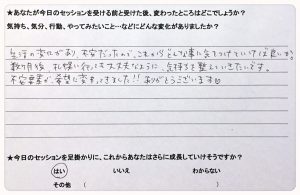 ★あなたが今日のセッションを受ける前と受けた後、変わったところはどこでしょうか？
気持ち、気分、行動、やってみたいこと…などにどんな変化がありましたか？
生活の変化があり、不安だったので、これからどんな事に気をつけていけば良いか。
数ヶ月後、札幌に行っても大丈夫なように、気持ちを整えていきたいです。
不安要素が、希望に変わってきました!! ありがとうございます
★今日のセッションを足掛かりに、これからあなたはさらに成長していけそうですか？
はい いいえ わからない
その他 （ ）